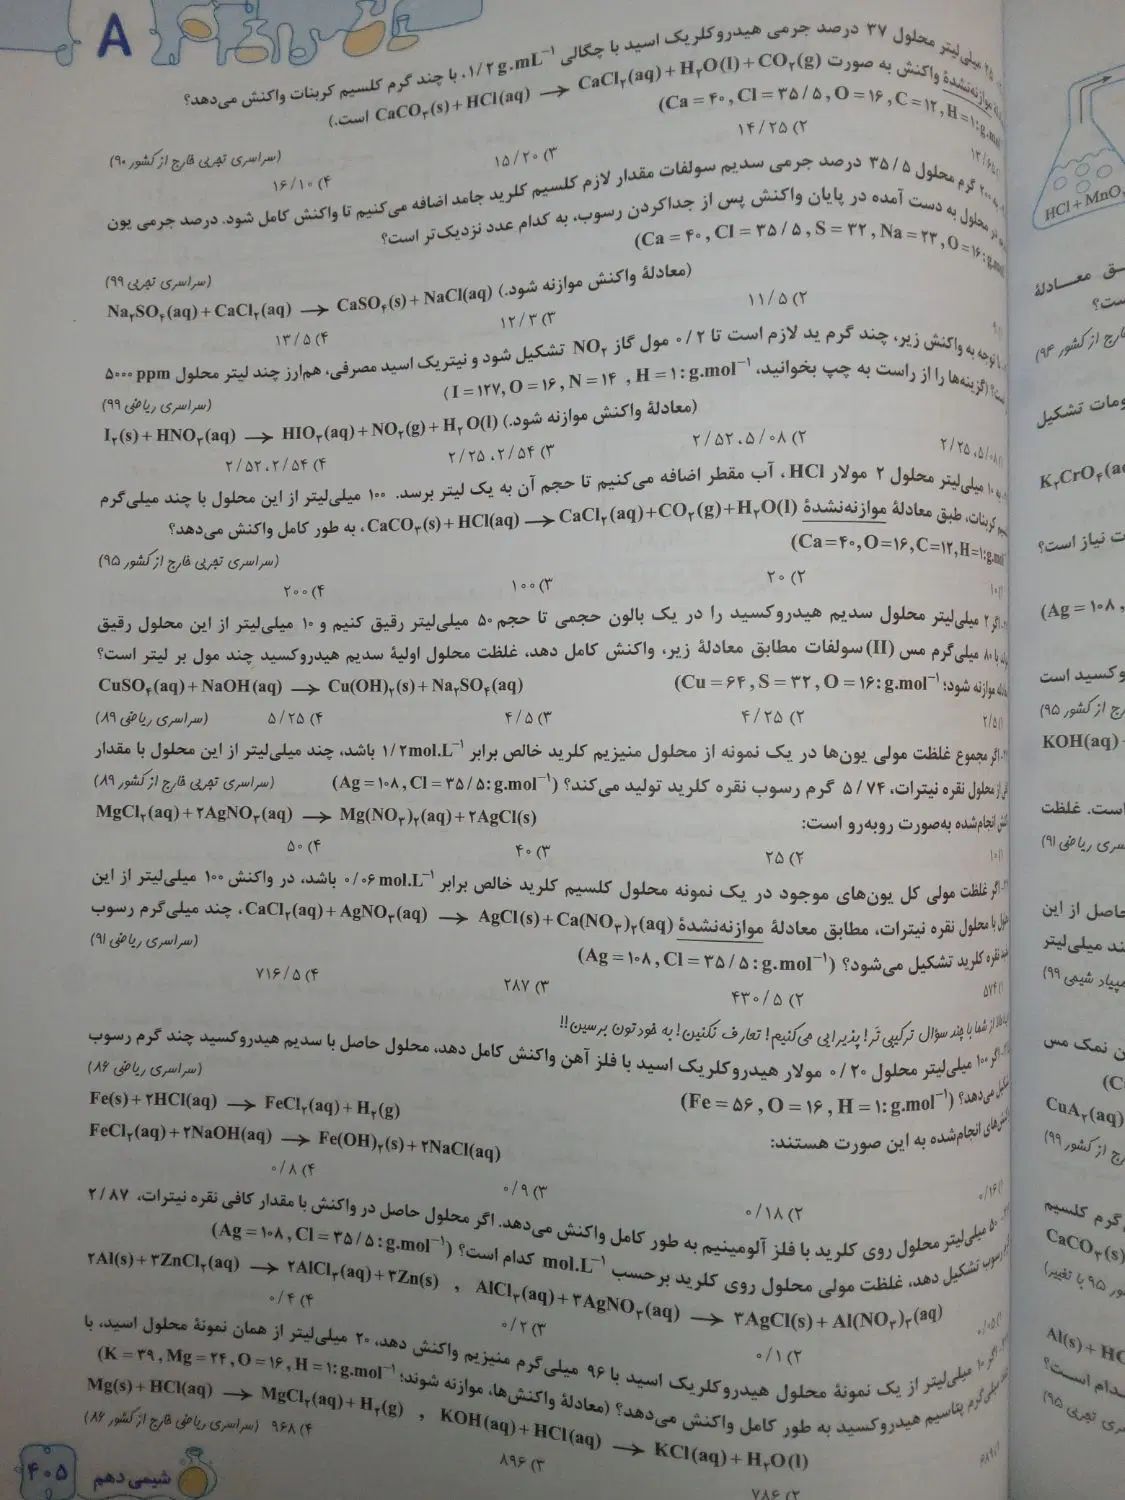 A
۲۵ میلی‌لیتر محلول ۳۷ درصد جرمی هیدروکلریک اسید با چگالی ۱/۲ g.mL⁻¹، با چند گرم کلسیم کربنات واکنش می‌دهد؟
موازنه‌نشدهٔ واکنش به صورت CaCO₃(s) + HCl(aq) → CaCl₂(aq) + H₂O(l) + CO₂(g) است.)
(Ca = ۴۰, Cl = ۳۵/۵, O = ۱۶, C = ۱۲, H = ۱: g.mol
۲) ۱۴/۲۵
۳) ۱۵/۲۰
۴) ۱۶/۱۰
(سراسری تجربی خارج از کشور ۹۰)
۲۰۰ گرم محلول ۳۵/۵ درصد جرمی سدیم سولفات مقدار لازم کلسیم کلرید جامد اضافه می‌کنیم تا واکنش کامل شود. درصد جرمی یون
در محلول به دست آمده در پایان واکنش پس از جداکردن رسوب، به کدام عدد نزدیک‌تر است؟
(Ca = ۴۰, Cl = ۳۵/۵, S = ۳۲, Na = ۲۳, O = ۱۶: g.mol
(معادلهٔ واکنش موازنه شود.) Na₂SO₄(aq) + CaCl₂(aq) → CaSO₄(s) + NaCl(aq)
(سراسری تجربی ۹۹)
۲) ۱۱/۵
۳) ۱۲/۳
۴) ۱۳/۵
توجه به واکنش زیر، چند گرم ید لازم است تا ۰/۲ مول گاز NO₂ تشکیل شود و نیتریک اسید مصرفی، هم‌ارز چند لیتر محلول ۵۰۰۰ ppm
است؟ (گزینه‌ها را از راست به چپ بخوانید، I = ۱۲۷, O = ۱۶, N = ۱۴, H = ۱: g.mol⁻¹)
(معادلهٔ واکنش موازنه شود.) I₂(s) + HNO₃(aq) → HIO₃(aq) + NO₂(g) + H₂O(l)
(سراسری ریاضی ۹۹)
۱) ۵/۰۸، ۲/۲۵
۲) ۵/۰۸، ۲/۵۲
۳) ۲/۵۴، ۲/۲۵
۴) ۲/۵۴، ۲/۵۲
۱۰ میلی‌لیتر محلول ۲ مولار HCl، آب مقطر اضافه می‌کنیم تا حجم آن به یک لیتر برسد. ۱۰۰ میلی‌لیتر از این محلول با چند میلی‌گرم
کربنات، طبق معادلهٔ موازنه‌نشدهٔ CaCO₃(s) + HCl(aq) → CaCl₂(aq) + CO₂(g) + H₂O(l)، به طور کامل واکنش می‌دهد؟
(Ca = ۴۰, O = ۱۶, C = ۱۲, H = ۱: g.mol
(سراسری تجربی خارج از کشور ۹۵)
۱) ۱۰
۲) ۲۰
۳) ۱۰۰
۴) ۲۰۰
اگر ۲ میلی‌لیتر محلول سدیم هیدروکسید را در یک بالون حجمی تا حجم ۵۰ میلی‌لیتر رقیق کنیم و ۱۰ میلی‌لیتر از این محلول رقیق
با ۸۰ میلی‌گرم مس (II) سولفات مطابق معادلهٔ زیر، واکنش کامل دهد، غلظت محلول اولیهٔ سدیم هیدروکسید چند مول بر لیتر است؟
موازنه شود؛ (Cu = ۶۴, S = ۳۲, O = ۱۶: g.mol⁻¹)
CuSO₄(aq) + NaOH(aq) → Cu(OH)₂(s) + Na₂SO₄(aq)
۱) ۲/۵
۲) ۴/۲۵
۳) ۴/۵
۴) ۵/۲۵
(سراسری ریاضی ۸۹)
اگر مجموع غلظت مولی یون‌ها در یک نمونه از محلول منیزیم کلرید خالص برابر ۱/۲ mol.L⁻¹ باشد، چند میلی‌لیتر از این محلول با مقدار
محلول نقره نیترات، ۵/۷۴ گرم رسوب نقره کلرید تولید می‌کند؟ (Ag = ۱۰۸, Cl = ۳۵/۵: g.mol⁻¹)
(سراسری تجربی خارج از کشور ۸۹)
انجام‌شده به‌صورت روبه‌رو است: MgCl₂(aq) + ۲AgNO₃(aq) → Mg(NO₃)₂(aq) + ۲AgCl(s)
۱) ۱۰
۲) ۲۵
۳) ۴۰
۴) ۵۰
اگر غلظت مولی کل یون‌های موجود در یک نمونه محلول کلسیم کلرید خالص برابر ۰/۰۶ mol.L⁻¹ باشد، در واکنش ۱۰۰ میلی‌لیتر از این
با محلول نقره نیترات، مطابق معادلهٔ موازنه‌نشدهٔ CaCl₂(aq) + AgNO₃(aq) → AgCl(s) + Ca(NO₃)₂(aq)، چند میلی‌گرم رسوب
نقره کلرید تشکیل می‌شود؟ (Ag = ۱۰۸, Cl = ۳۵/۵: g.mol⁻¹)
(سراسری ریاضی ۹۱)
۱) ۵۷۴
۲) ۴۳۰/۵
۳) ۲۸۷
۴) ۷۱۶/۵
از شما با چند سؤال ترکیبی تَر! پذیرایی می‌کنیم! تعارف نکنین! به خودتون برسین!!
اگر ۱۰۰ میلی‌لیتر محلول ۰/۲۰ مولار هیدروکلریک اسید با فلز آهن واکنش کامل دهد، محلول حاصل با سدیم هیدروکسید چند گرم رسوب
می‌دهد؟ (Fe = ۵۶, O = ۱۶, H = ۱: g.mol⁻¹)
(سراسری ریاضی ۸۶)
انجام‌شده به این صورت هستند:
Fe(s) + ۲HCl(aq) → FeCl₂(aq) + H₂(g)
FeCl₂(aq) + ۲NaOH(aq) → Fe(OH)₂(s) + ۲NaCl(aq)
۲) ۰/۱۸
۳) ۰/۹
۴) ۰/۸
۵۰ میلی‌لیتر محلول روی کلرید با فلز آلومینیم به طور کامل واکنش می‌دهد. اگر محلول حاصل در واکنش با مقدار کافی نقره نیترات، ۲/۸۷
رسوب تشکیل دهد، غلظت مولی محلول روی کلرید برحسب mol.L⁻¹ کدام است؟ (Ag = ۱۰۸, Cl = ۳۵/۵: g.mol⁻¹)
۲Al(s) + ۳ZnCl₂(aq) → ۲AlCl₃(aq) + ۳Zn(s) , AlCl₃(aq) + ۳AgNO₃(aq) → ۳AgCl(s) + Al(NO₃)₃(aq)
۱) ۰/۰۵
۲) ۰/۱
۳) ۰/۲
۴) ۰/۴
اگر ۱۰ میلی‌لیتر از یک نمونهٔ محلول هیدروکلریک اسید با ۹۶ میلی‌گرم منیزیم واکنش دهد، ۲۰ میلی‌لیتر از همان نمونهٔ محلول اسید، با
میلی‌گرم پتاسیم هیدروکسید به طور کامل واکنش می‌دهد؟ (معادلهٔ واکنش‌ها، موازنه شوند؛ K = ۳۹, Mg = ۲۴, O = ۱۶, H = ۱: g.mol⁻¹)
Mg(s) + HCl(aq) → MgCl₂(aq) + H₂(g) , KOH(aq) + HCl(aq) → KCl(aq) + H₂O(l)
۲) ۷۸۶
۳) ۸۹۶
۴) ۹۶۸
(سراسری ریاضی خارج از کشور ۸۶)
شیمی دهم
۴۰۵
HCl + MnO₂
معادلهٔ
ست؟
خارج از کشور ۹۴)
ومات تشکیل
K₂CrO₄(a
ت نیاز است؟
(Ag = ۱۰۸,
وکسید است
از کشور ۹۵)
KOH(aq) +
است. غلظت
سری ریاضی ۹۱)
حاصل از این
ند میلی‌لیتر
مپیاد شیمی ۹۹)
ن نمک مس
CuA₂(aq)
ج از کشور ۹۹)
گرم کلسیم
CaCO₃(s)
ور ۹۵ با تغییر)
Al(s) + HC
دام است؟
ری تجربی ۹۵)